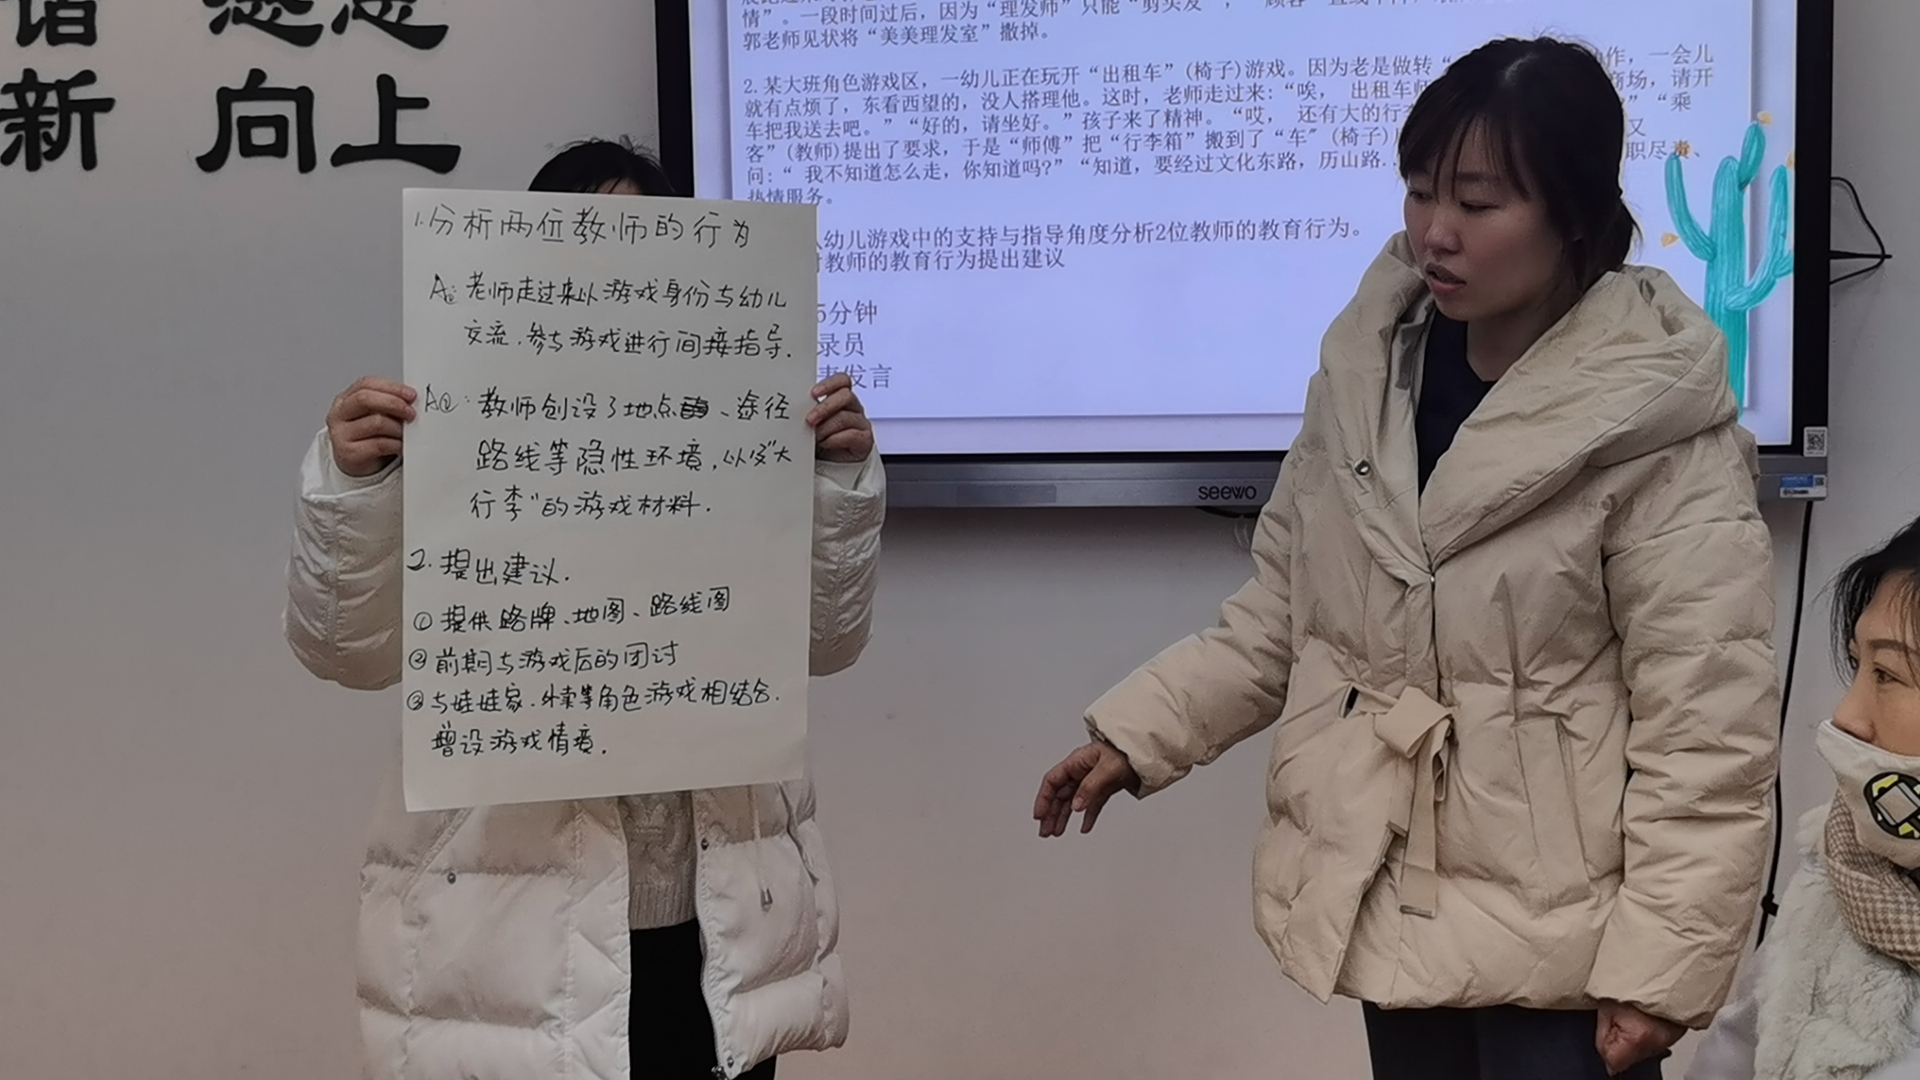 新 向上
情”。一段时间过后，因为“理发师”只能“剪头发”，
郭老师见状将“美美理发室”撤掉。
2.某大班角色游戏区，一幼儿正在玩开“出租车”(椅子)游戏。因为老是做转“ 作，一会儿
就有点烦了，东看西望的，没人搭理他。这时，老师走过来：“唉， 出租车师 商场，请开
车把我送去吧。”“好的，请坐好。”孩子来了精神。“哎， 还有大的行李 ”“乘
客”(教师)提出了要求，于是“师傅”把“行李箱”搬到了“车”(椅子) 又
问：“ 我不知道怎么走，你知道吗？”“知道，要经过文化东路，历山路.. 职尽责、
热情服务。
幼儿游戏中的支持与指导角度分析2位教师的教育行为。
教师的教育行为提出建议
5分钟
录员
发言
seewo
1.分析两位教师的行为
A①:老师走过来以游戏身份与幼儿
交流，参与游戏进行间接指导.
A②:教师创设了地点、途径
路线等隐性环境，以及“大
行李”的游戏材料.
2.提出建议.
①提供路牌、地图、路线图
②前期与游戏后的团讨
③与娃娃家.外卖等角色游戏相结合.
增设游戏情境.